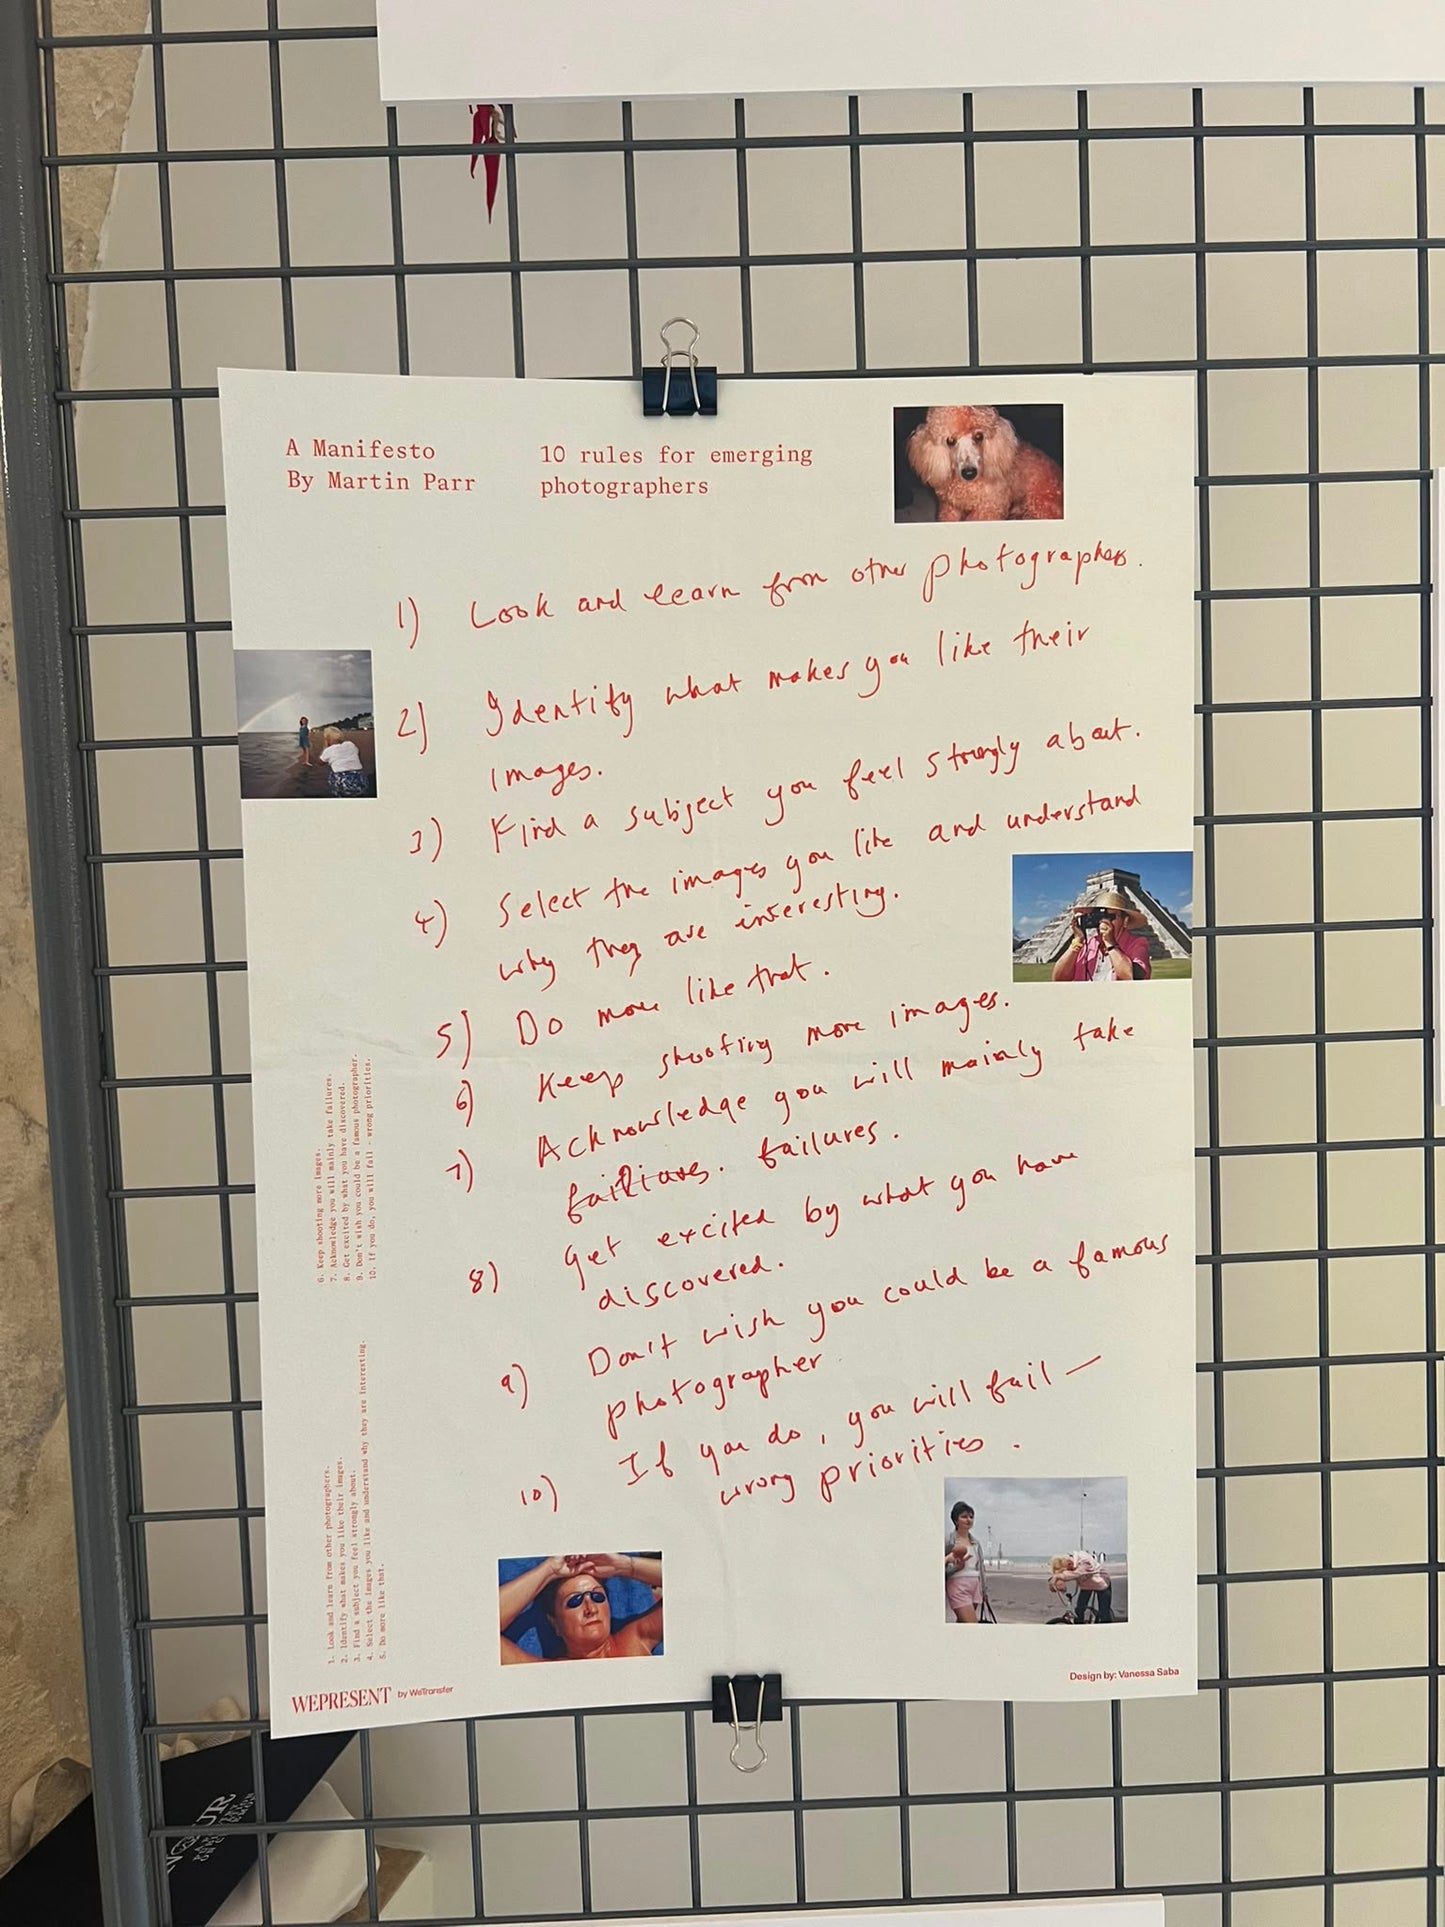 A Manifesto
By Martin Parr
10 rules for emerging
photographers
1) Look and learn from other photographers.
2) Identify what makes you like their
images.
3) Find a subject you feel strongly about.
4) Select the images you like and understand
why they are interesting.
5) Do more like that.
6) Keep shooting more images.
7) Acknowledge you will mainly take
failures. failures.
8) Get excited by what you have
discovered.
9) Don't wish you could be a famous
photographer
10) If you do, you will fail —
wrong priorities.
1. Look and learn from other photographers.
2. Identify what makes you like their images.
3. Find a subject you feel strongly about.
4. Select the images you like and understand why they are interesting.
5. Do more like that.
6. Keep shooting more images.
7. Acknowledge you will mainly take failures.
8. Get excited by what you have discovered.
9. Don't wish you could be a famous photographer.
10. If you do, you will fail - wrong priorities.
WEPRESENT by WeTransfer
Design by: Vanessa Saba